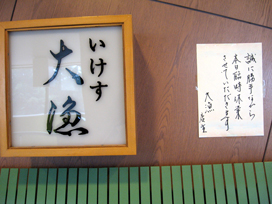 いけす
大漁
誠に勝手ながら
本日臨時休業
させていただきます
大漁
店主